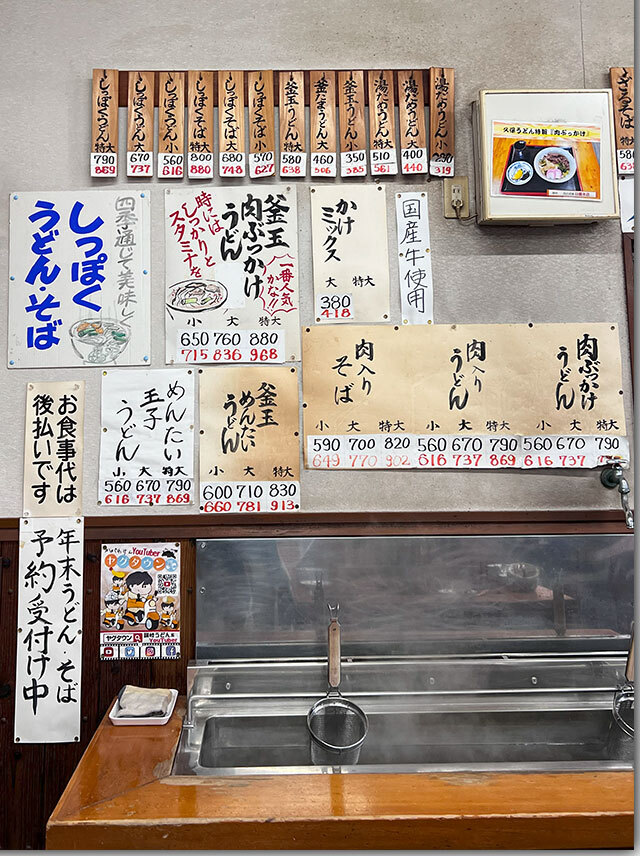 しっぽくうどん 特大 790 869
しっぽくうどん 大 670 737
しっぽくうどん 小 560 616
しっぽくそば 特大 800 880
しっぽくそば 大 680 748
しっぽくそば 小 570 627
釜玉うどん 特大 580 638
釜たまうどん 大 460 506
釜玉うどん 小 350 385
湯だめうどん 特大 510 561
湯だめうどん 大 400 440
湯だめうどん 小 290 319
久保うどん特製『肉ぶっかけ』
四季通じて美味し
しっぽく
うどん・そば
釜玉
肉ぶっかけ
うどん
時には
しっかりと
スタミナを
一番人気
かな!!
小 大 特大
650 760 880
715 836 968
かけ
ミックス
大 特大
380
418
国産牛使用
肉入り
そば
小 大 特大
590 700 820
649 770 902
肉入り
うどん
小 大 特大
560 670 790
616 737 869
肉ぶっかけ
うどん
小 大 特大
560 670 790
616 737
お食事代は
後払いです
めんたい
玉子
うどん
小 大 特大
560 670 790
616 737 869
釜玉
めんたい
うどん
小 大 特大
600 710 830
660 781 913
年末うどん・そば
予約受付け中
YouTuber
ヤクタウン
ヤクタウン
YouTuber